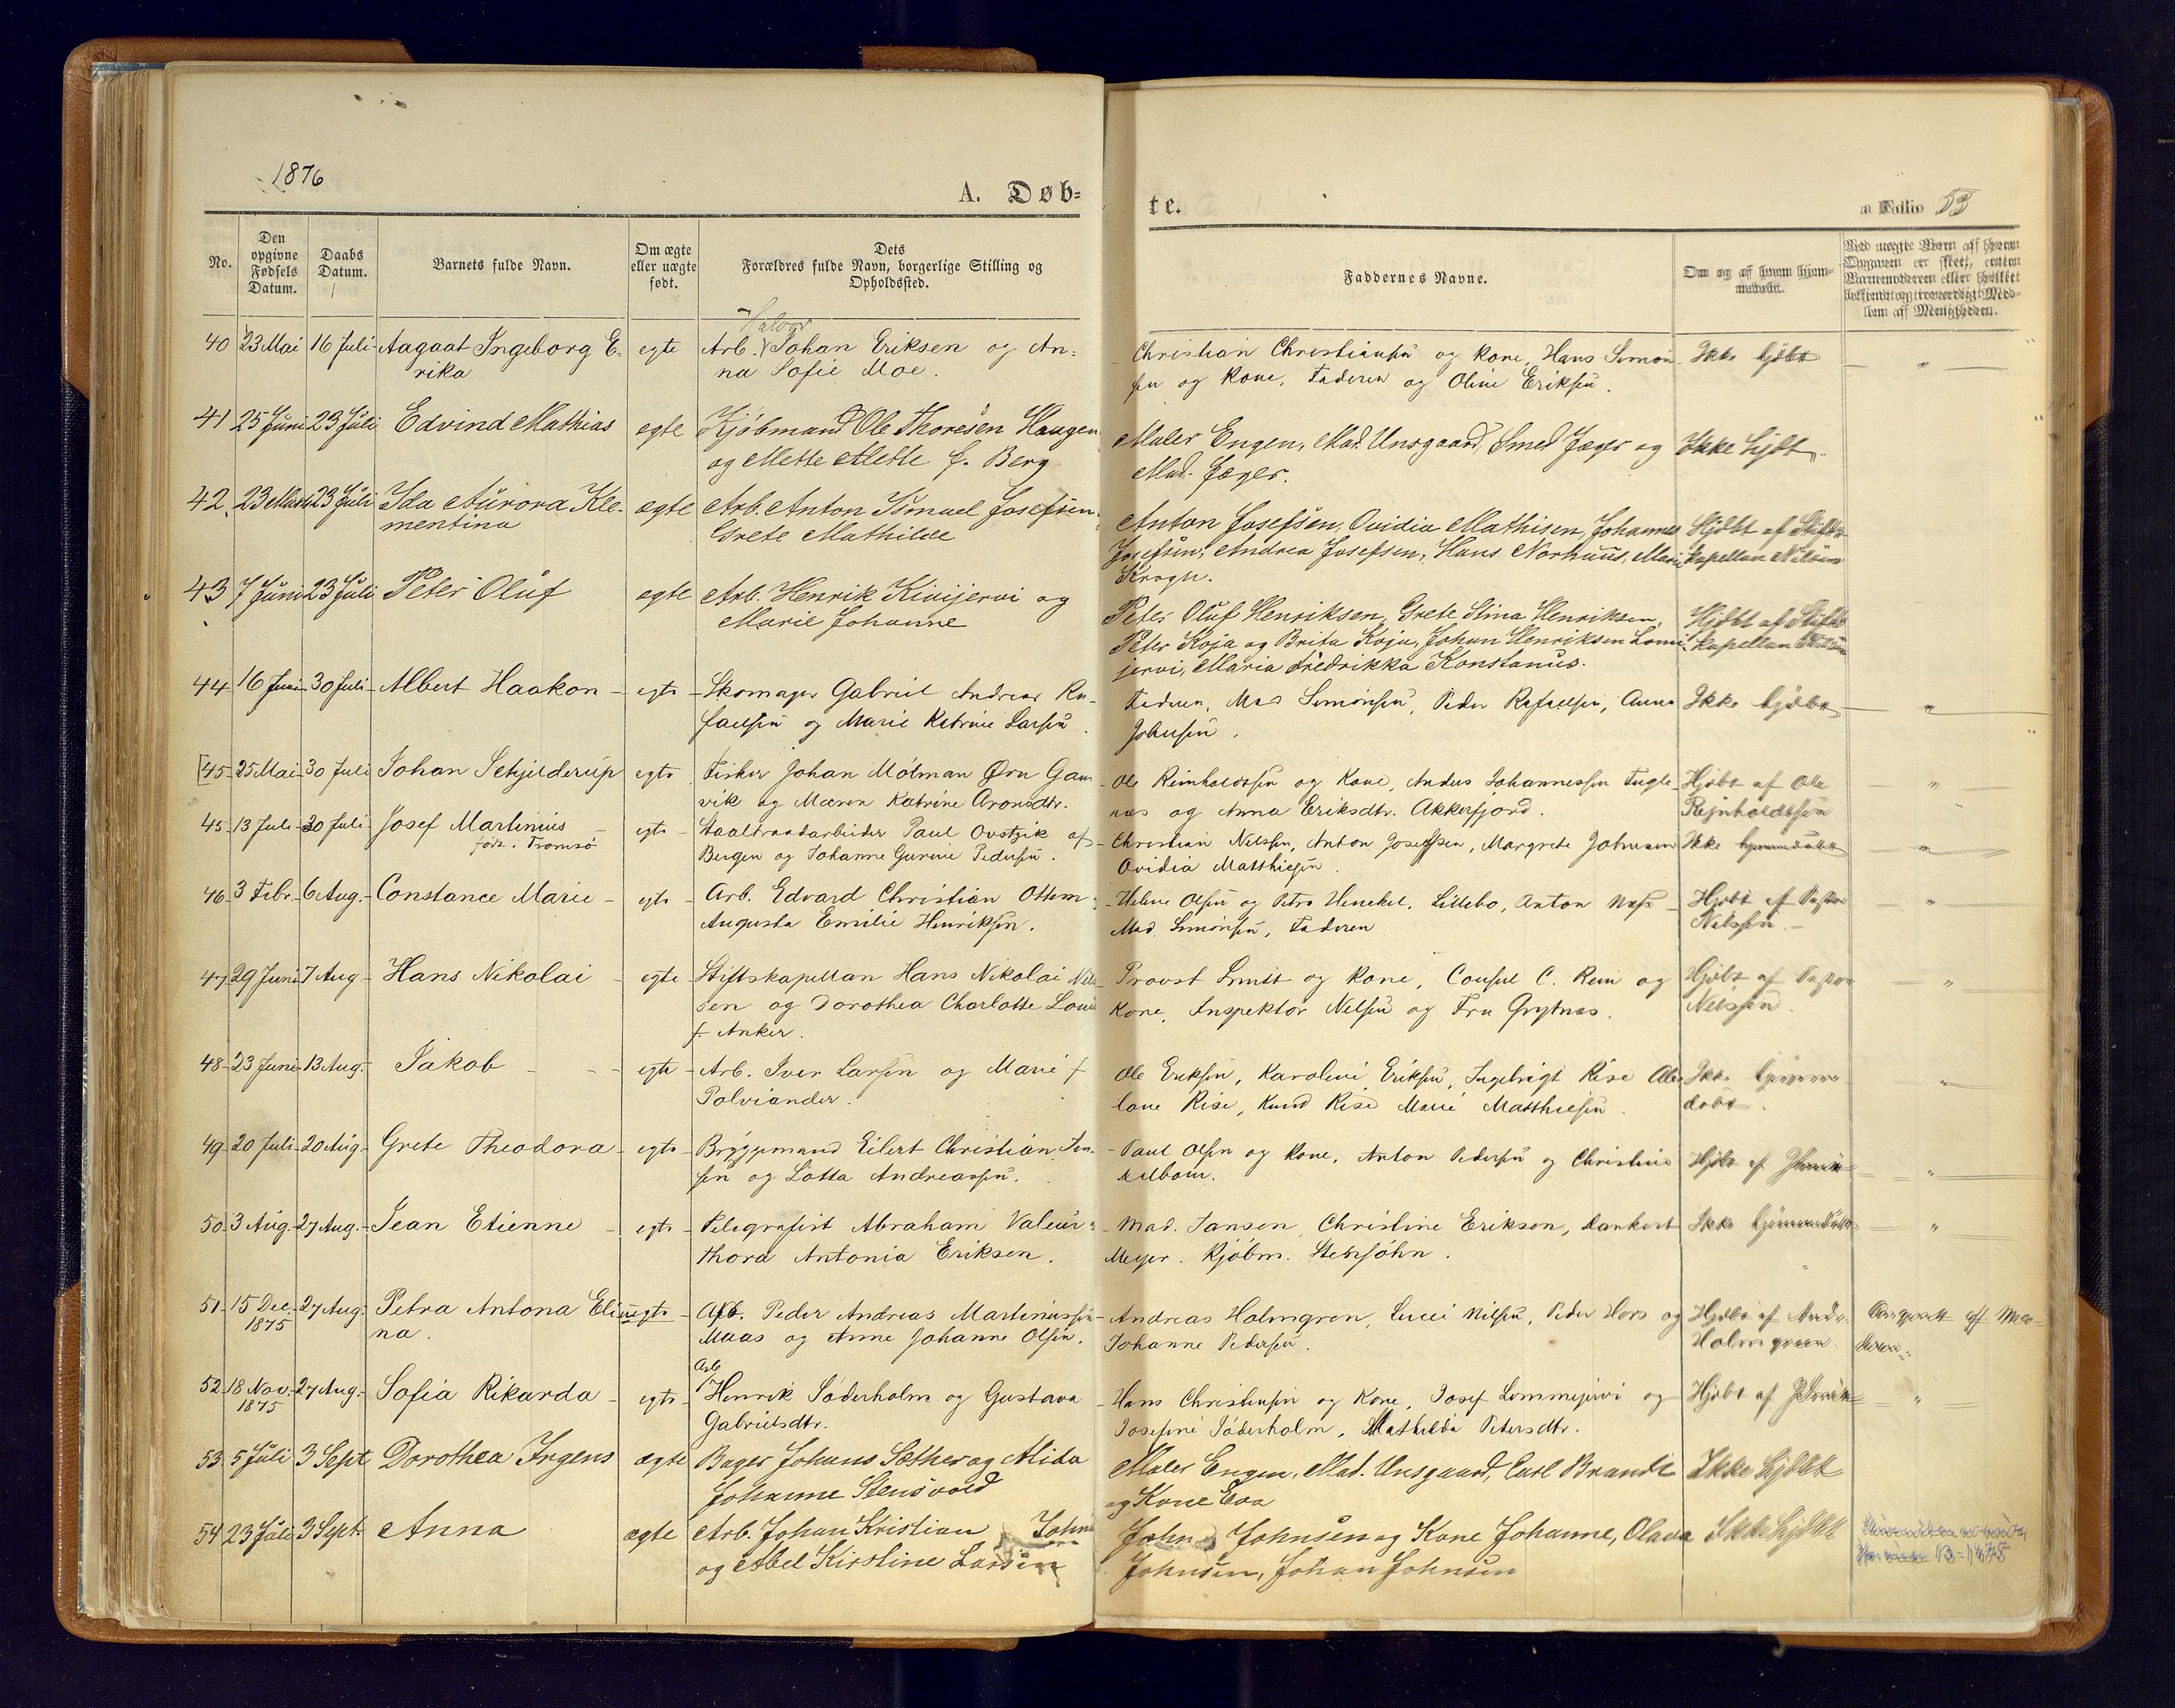 1876
A. Døb=
te.
Folio 53
No.
Den opgivne Fødsels Datum.
Daabs Datum.
Barnets fulde Navn.
Om ægte eller uægte født.
Dets Forældres fulde Navn, borgerlige Stilling og Opholdssted.
Faddernes Navne.
Om og af hvem hjem=
Ved uægte Børn af hvem Opgaven er skeet, enten Barnemoderen eller hvilket bekjendt og troværdigt Med=lem af Menigheden.
Halvor
40 23 Mai 16 Juli Aagaat Ingeborg E= egte Arb. Johan Eriksen og An= Christian Christiansen og Kone, Hans Simon Ikke hjdbt "
rika na Sofie Moe. sen og Kone, Faderen og Oline Eriksen.
41 25 Juni 23 Juli Edvind Mathias egte Kjöbmand Ole Thoresen Haugen Maler Engen, Mad. Unsgaard, Smed Jæger og Ikke hjdbt
og Mette Mette f. Berg Mad. Jæger.
42. 23 Marts 23 Juli Ida Aurora Kle= ægte Arb. Anton Ismael Josefsen Anton Josefsen, Ovidia Mathisen, Johannes Hjdbt af Stifts
mentina Grete Mathilde Josefsen, Andrea Josefsen, Hans Norhuus, Marie kapellan Nilsen
Krogh.
43 7 Juni 23 Juli Peter Oluf egte Arb. Henrik Kivijervi og Peter Oluf Henriksen, Grete Stina Henriksen, Hjdbt af Stifts
Marie Johanne Peter Koja og Brita Koja, Johan Henriksen Lomi= kapellan Nilsen
jervi, Maria Fredrikka Konstanus.
44 16 Juni 30 Juli Albert Haakon egte Skomager Gabriel Andreas Ra= Faderen, Mad Simonsen, Peder Rafaelsen, Anna Ikke hjdbt "
faelsen og Marie Katrine Larsen. Johnsen.
[45 25 Mai 30 Juli Johan Schjelderup egte Fisker Johan Mölman Ørn Gam Ole Reinholdssen og Kone, Anders Johannessen Fugle= Hjdbt af Ole "
vik og Maren Katrine Aronsdtr. næs og Anna Eriksdtr. Akkerfjord. Rejnholdtsen
45 13 Juli 30 Juli Josef Martinius egte Staaltraadarbeider Paul Ovstzik af Christian Nilssen, Anton Joseffsen, Margrete Johnsen Ikke "
født i Tromsö Bergen og Johanne Gurine Pedersen. Ovidia Matthiesen.
46 3 Febr. 6 Aug. Constance Marie egte Arb. Edvard Christian Ottem= Helene Olsen og Petra Henckel, Lillebo, Anton Næss Hjdbt af Pastor "
Augusta Emilie Henriksen. Mad. Simonsen, Faderen Nilssen
47 29 Juni 7 Aug Hans Nikolai egte Stiftskapellan Hans Nikolai Nils Provst Smitt og Kone, Consul C. Rein og Hjdbt af Pastor "
sen og Dorothea Charlotte Louise Kone, Inspektör Nilsen og Fru Grytnæs. Nilssen
f. Anker.
48 23 Juni 13 Aug. Jakob egte Arb. Iver Larsen og Marie f Ole Eriksen, Karoline Eriksen, Ingebrigt Rise Ole Ikke "
Palviander. lone Rise, Knud Rise Marie Matthiesen. döbt.
49 20 Juli 20 Aug. Grete Theodora egte Bryggemand Eilert Christian Jen Paul Olsen og Kone, Anton Pedersen og Christine Hjdbt af "
sen og Lotta Andreassen.
50 3 Aug. 27 Aug. Jean Etienne egte Telegrafist Abraham Valeur= Mad. Jansen, Christine Eriksen, Dankert Ikke "
Thora Antonia Eriksen. Meyer. Kjöbm. Stensöhn.
51 15 Dec. 27 Aug. Petra Antona Eli uegte Arb. Peder Andreas Martiniussen Andreas Holmgren, Lucie Nilsen, Peder Hors og Hjdbt af Andr. af Mo=
1875 na. Maas og Anne Johanne Olsen. Johanne Pedersen. Holmgreen. deren
Arb
52 18 Nov. 27 Aug. Sofia Rikarda egte Henrik Söderholm og Gustava Hans Christensen og Kone, Josef Lommijervi og Hjdbt af "
1875 Gabrielsdtr. Josefine Söderholm, Mathilda Petersdtr.
53 5 Juli 3 Sept Dorothea Irgens ægte Bager Johans Sæther og Alida Maler Engen, Mad. Unsgaard, Carl Brandt Ikke hjdbt
Johanne Stensvold og Kone Eva
54 23 Juli 3 Sept. Anna ægte Arb. Johan Kristian Johnsen John Johnsen og Kone Johanne, Olava Ikke hjdbt
og Abel Kirstine Larsen Johnsen, Johan Johnsen